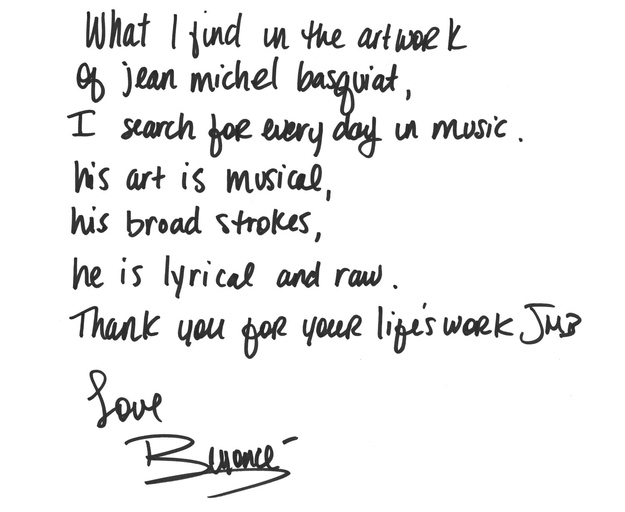 What I find in the artwork
Of jean michel basquiat,
I search for every day in music.
his art is musical,
his broad strokes,
he is lyrical and raw.
Thank you for your life's work JMB
Love
Beyoncé